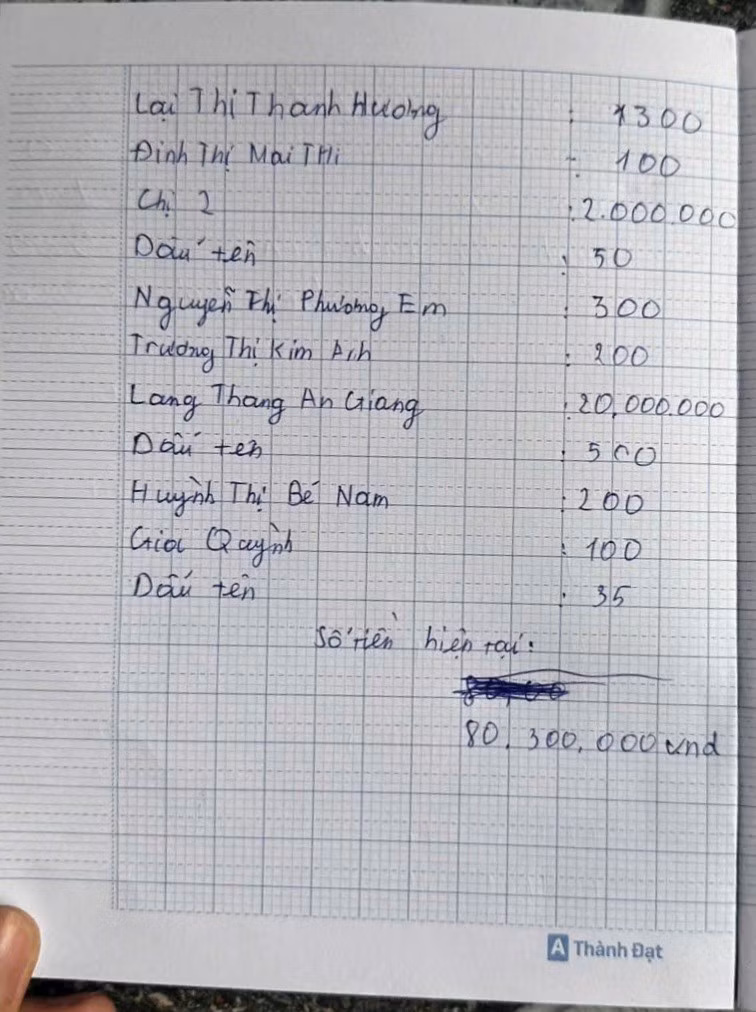 Lại Thị Thanh Hương : 1300
Đinh Thị Mai THi : 100
Chị 2 : 2.000.000
Dấu tên : 50
Nguyễn Thị Phương Em : 300
Trương Thị Kim Anh : 200
Lang Thang An Giang : 20,000.000
Dấu tên : 500
Huỳnh Thị Bé Nam : 200
Gia Quỳnh : 100
Dấu tên : 35
Số tiền hiện tại :
80.300.000 vnd
A Thành Đạt